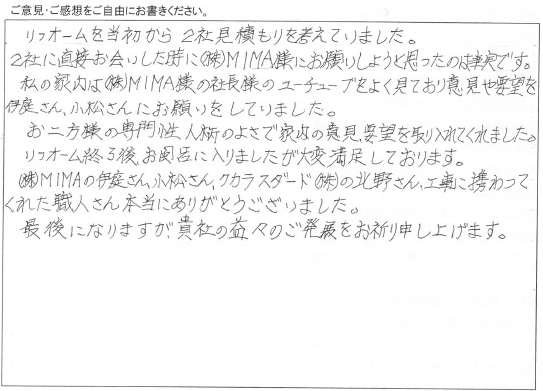 ご意見・ご感想をご自由にお書きください。
リフォームを当初から2社見積もりを考えていました。
2社に直接お会いした時に(株)MIMA様にお願いしようと思ったのは事実です。
私の家内は(株)MIMA様の社長様のユーチューブをよく見ており意見や要望を
伊庭さん、小松さんにお願いをしていました。
お二方様の専門性、人柄のよさで家内の意見、要望を取り入れてくれました。
リフォーム終了後、お風呂に入りましたが大変満足しております。
(株)MIMAの伊庭さん、小松さん、タカラスタダード(株)の北野さん、工事に携わって
くれた職人さん本当にありがとうございました。
最後になりますが、貴社の益々のご発展をお祈り申し上げます。